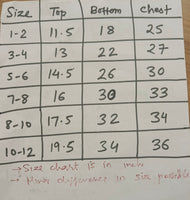 Size Top Bottom Chest
1-2 11.5 18 25
3-4 13 22 27
5-6 14.5 26 30
7-8 16 30 33
8-10 17.5 32 34
10-12 19.5 34 36
→ Size chart is in
→ difference in size possible